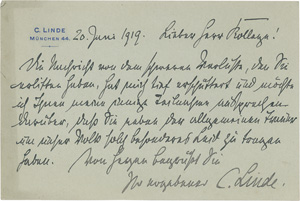 C. LINDE
MÜNCHEN 44.
20. Juni 1919. Lieber Herr Kollege!
Die Nachricht von dem schweren Verluste, den Sie
erlitten haben, hat mich tief erschüttert und möchte
ich Ihnen meine innige Teilnahme aussprechen
darüber, daß Sie neben der allgemeinen Trauer
um unser Volk solch besonderes Leid zu tragen
haben.
Von Herzen begrüßt Sie
Ihr ergebener C. Linde.